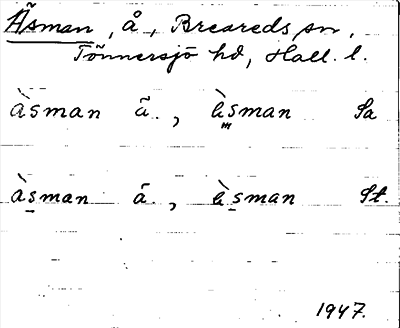 Åsman, å, Breareds sn,
Tönnersjö hd, Hall. l.
àsman ã., àsman Sa
àsman á., àsman St.
1947.